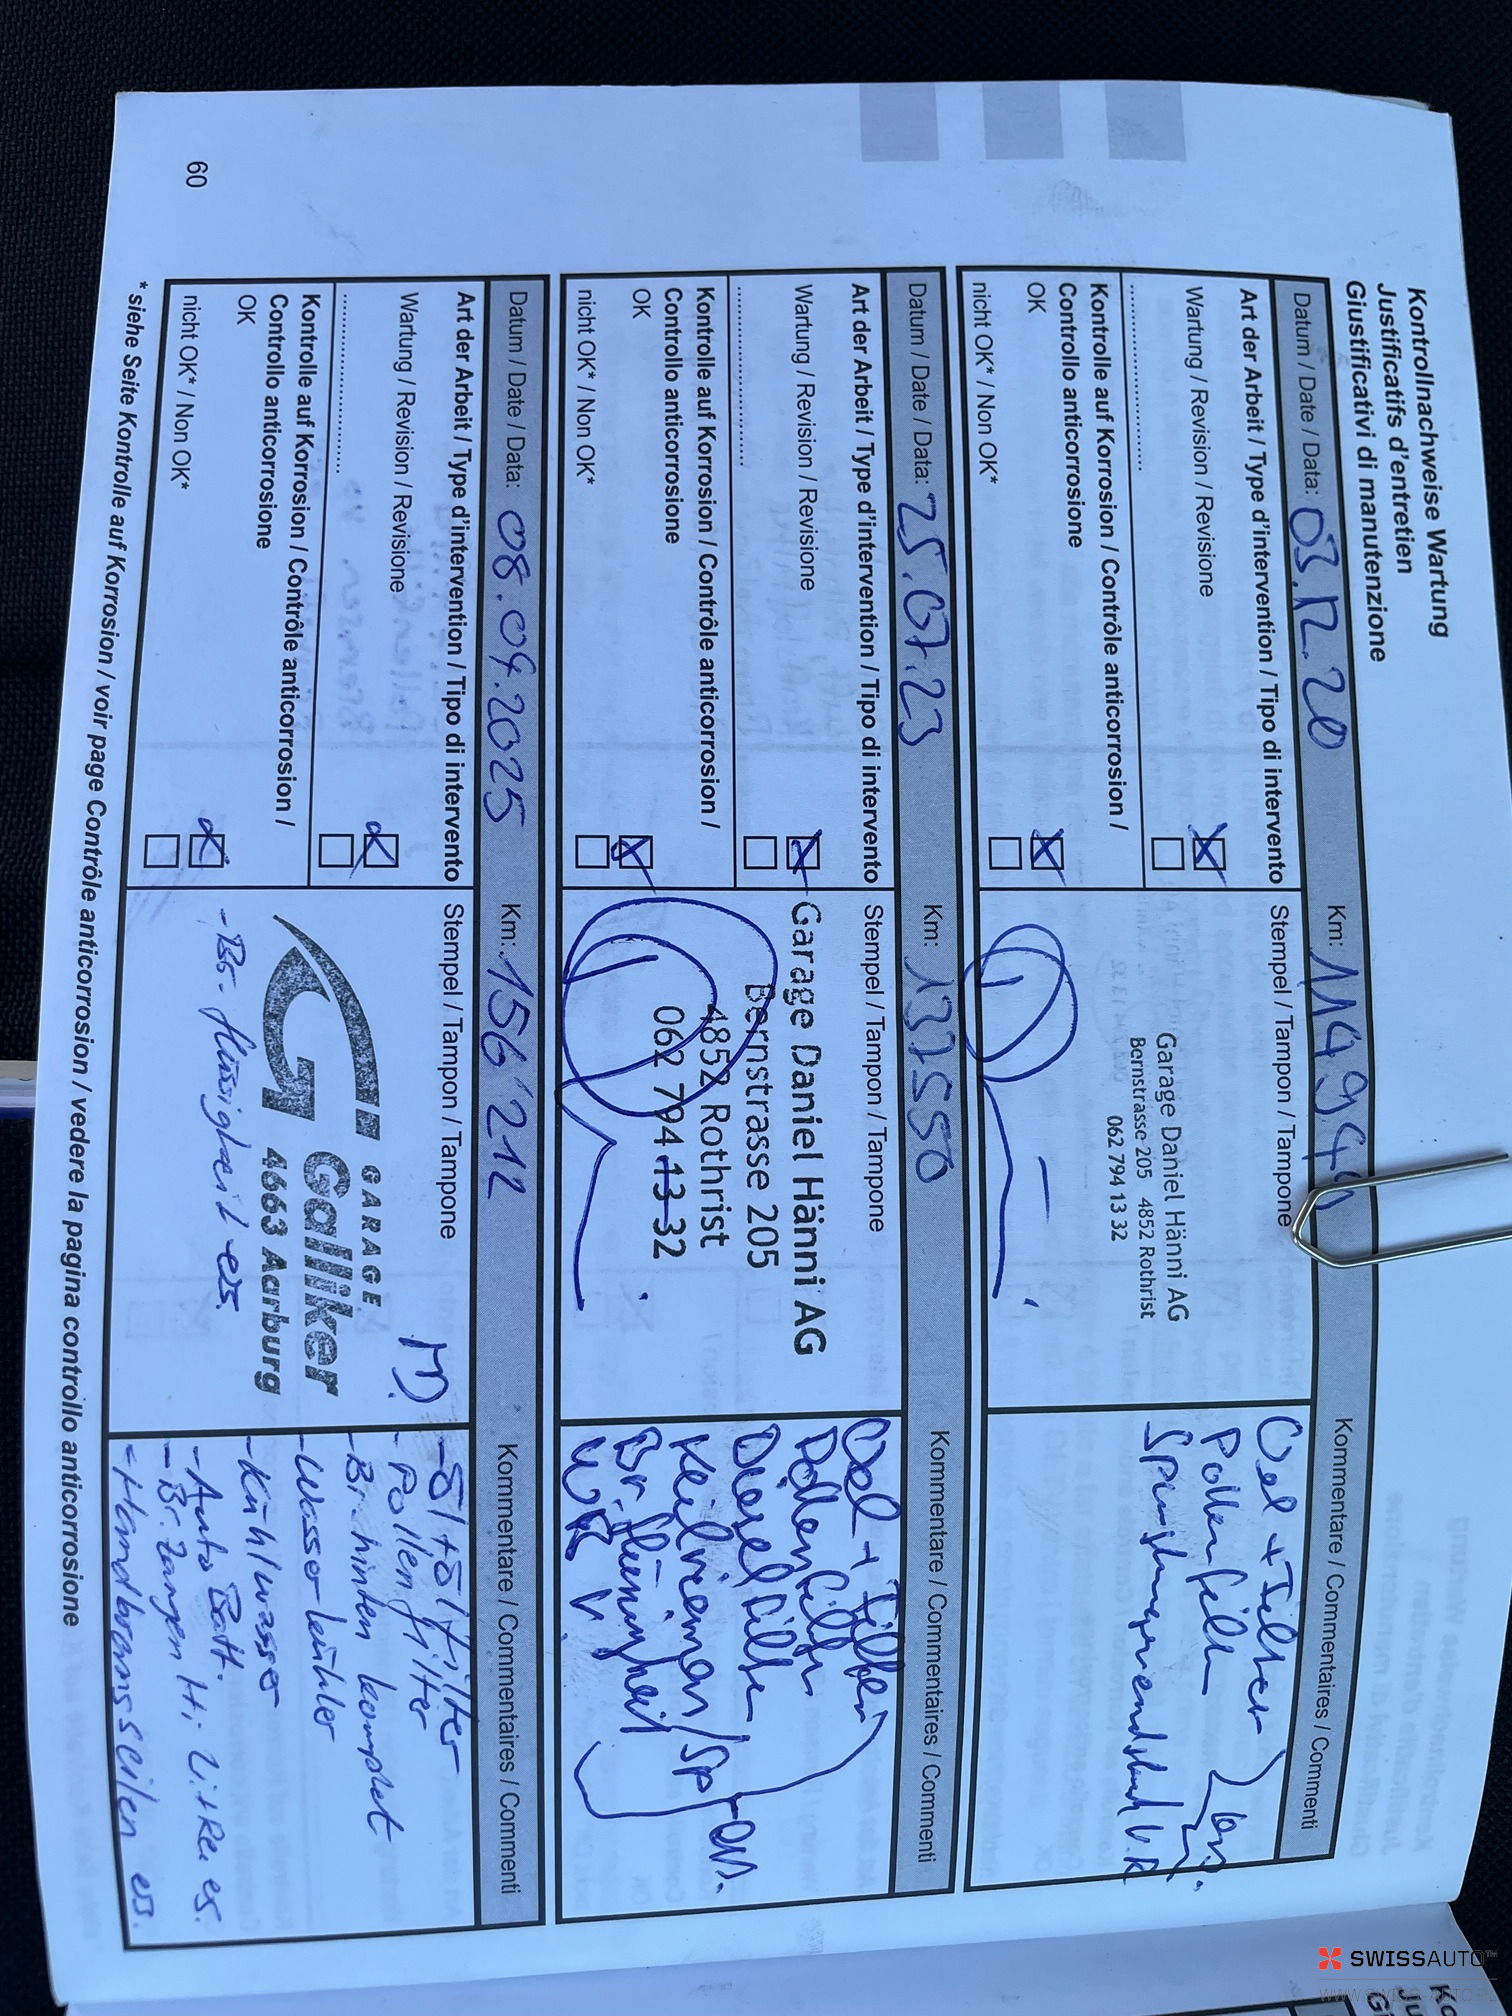 Kontrollnachweise Wartung
Justificatifs d'entretien
Giustificativi di manutenzione
Datum / Date / Data: 03.12.20 Km: 114949 Kommentare / Commentaires / Commenti
Art der Arbeit / Type d'intervention / Tipo di intervento
Stempel / Tampon / Tampone
Wartung / Revision / Revisione
Kontrolle auf Korrosion / Contrôle anticorrosion /
Controllo anticorrosione
OK
nicht OK* / Non OK*
Garage Daniel Hänni AG
Bernstrasse 205 4852 Rothrist
062 794 13 32
Oel + Filter
Pollenfilter
ers.
Datum / Date / Data: 25.07.23 Km: 137550 Kommentare / Commentaires / Commenti
Art der Arbeit / Type d'intervention / Tipo di intervento
Stempel / Tampon / Tampone
Wartung / Revision / Revisione
Kontrolle auf Korrosion / Contrôle anticorrosion /
Controllo anticorrosione
OK
nicht OK* / Non OK*
Garage Daniel Hänni AG
Bernstrasse 205
4852 Rothrist
062 794 13 32
Oel + Filter
Pollenfilter
Dieselfilter
Keilriemen / Sp
Br. flüssigkeit
ers.
Datum / Date / Data: 08.09.2025 Km: 156'212 Kommentare / Commentaires / Commenti
Art der Arbeit / Type d'intervention / Tipo di intervento
Stempel / Tampon / Tampone
Wartung / Revision / Revisione
Kontrolle auf Korrosion / Contrôle anticorrosion /
Controllo anticorrosione
OK
nicht OK* / Non OK*
GARAGE
Galliker
4663 Aarburg
- Br. flüssigkeit ers.
- Öl + Ölfilter
- Pollenfilter
- Br. hinten komplet
- Wasserkühler
- Kühlwasser
- Auto Batt.
- Br. Zangen Hi. Li + Re es.
- Handbremsseilen ers.
* siehe Seite Kontrolle auf Korrosion / voir page Contrôle anticorrosion / vedere la pagina controllo anticorrosione
60
SWISSAUTO™